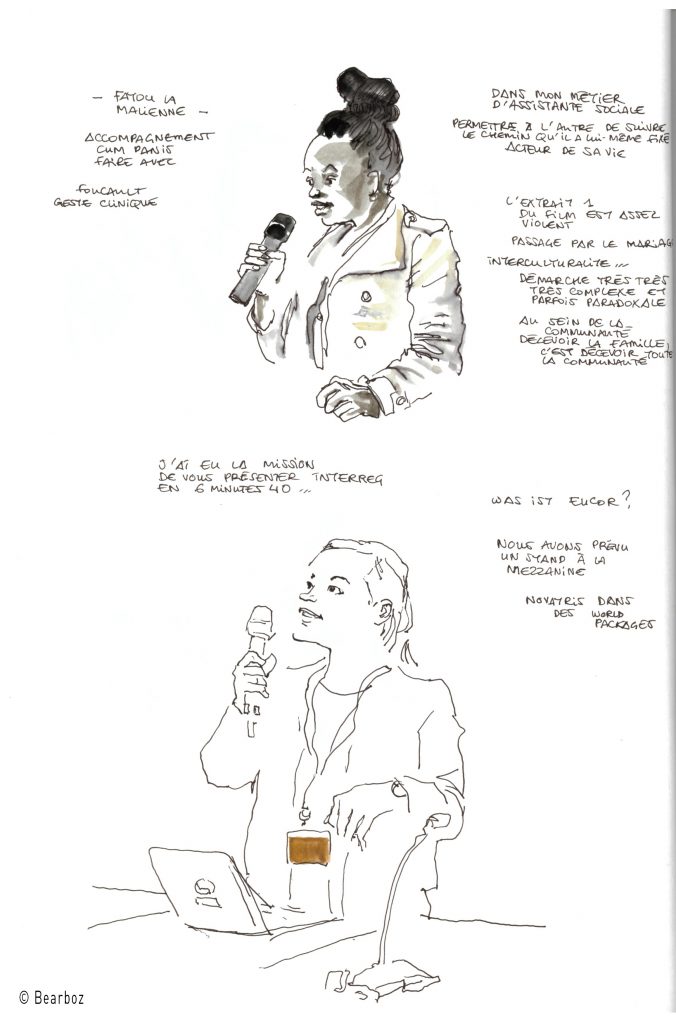 — FATOU LA
MALIENNE —
ACCOMPAGNEMENT
CUM PANIS
FAIRE AVEC
FOUCAULT
GESTE CLINIQUE
DANS MON MÉTIER
D'ASSISTANTE SOCIALE
PERMETTRE À L'AUTRE DE SUIVRE
LE CHEMIN QU'IL A LUI-MÊME FIXÉ
ACTEUR DE SA VIE
L'EXTRAIT 1
DU FILM EST ASSEZ
VIOLENT
PASSAGE PAR LE MARIAG
INTERCULTURALITÉ ...
DÉMARCHE TRÈS TRÈS
TRÈS COMPLEXE ET
PARFOIS PARADOXALE
AU SEIN DE LA
COMMUNAUTÉ
DÉCEVOIR LA FAMILLE,
C'EST DÉCEVOIR TOUTE
LA COMMUNAUTÉ
J'AI EU LA MISSION
DE VOUS PRÉSENTER INTERREG
EN 6 MINUTES 40 ...
WAS IST EUCOR ?
NOUS AVONS PRÉVU
UN STAND À LA
MEZZANINE
NOVATRIS DANS
DES WORLD
PACKAGES
© Bearboz